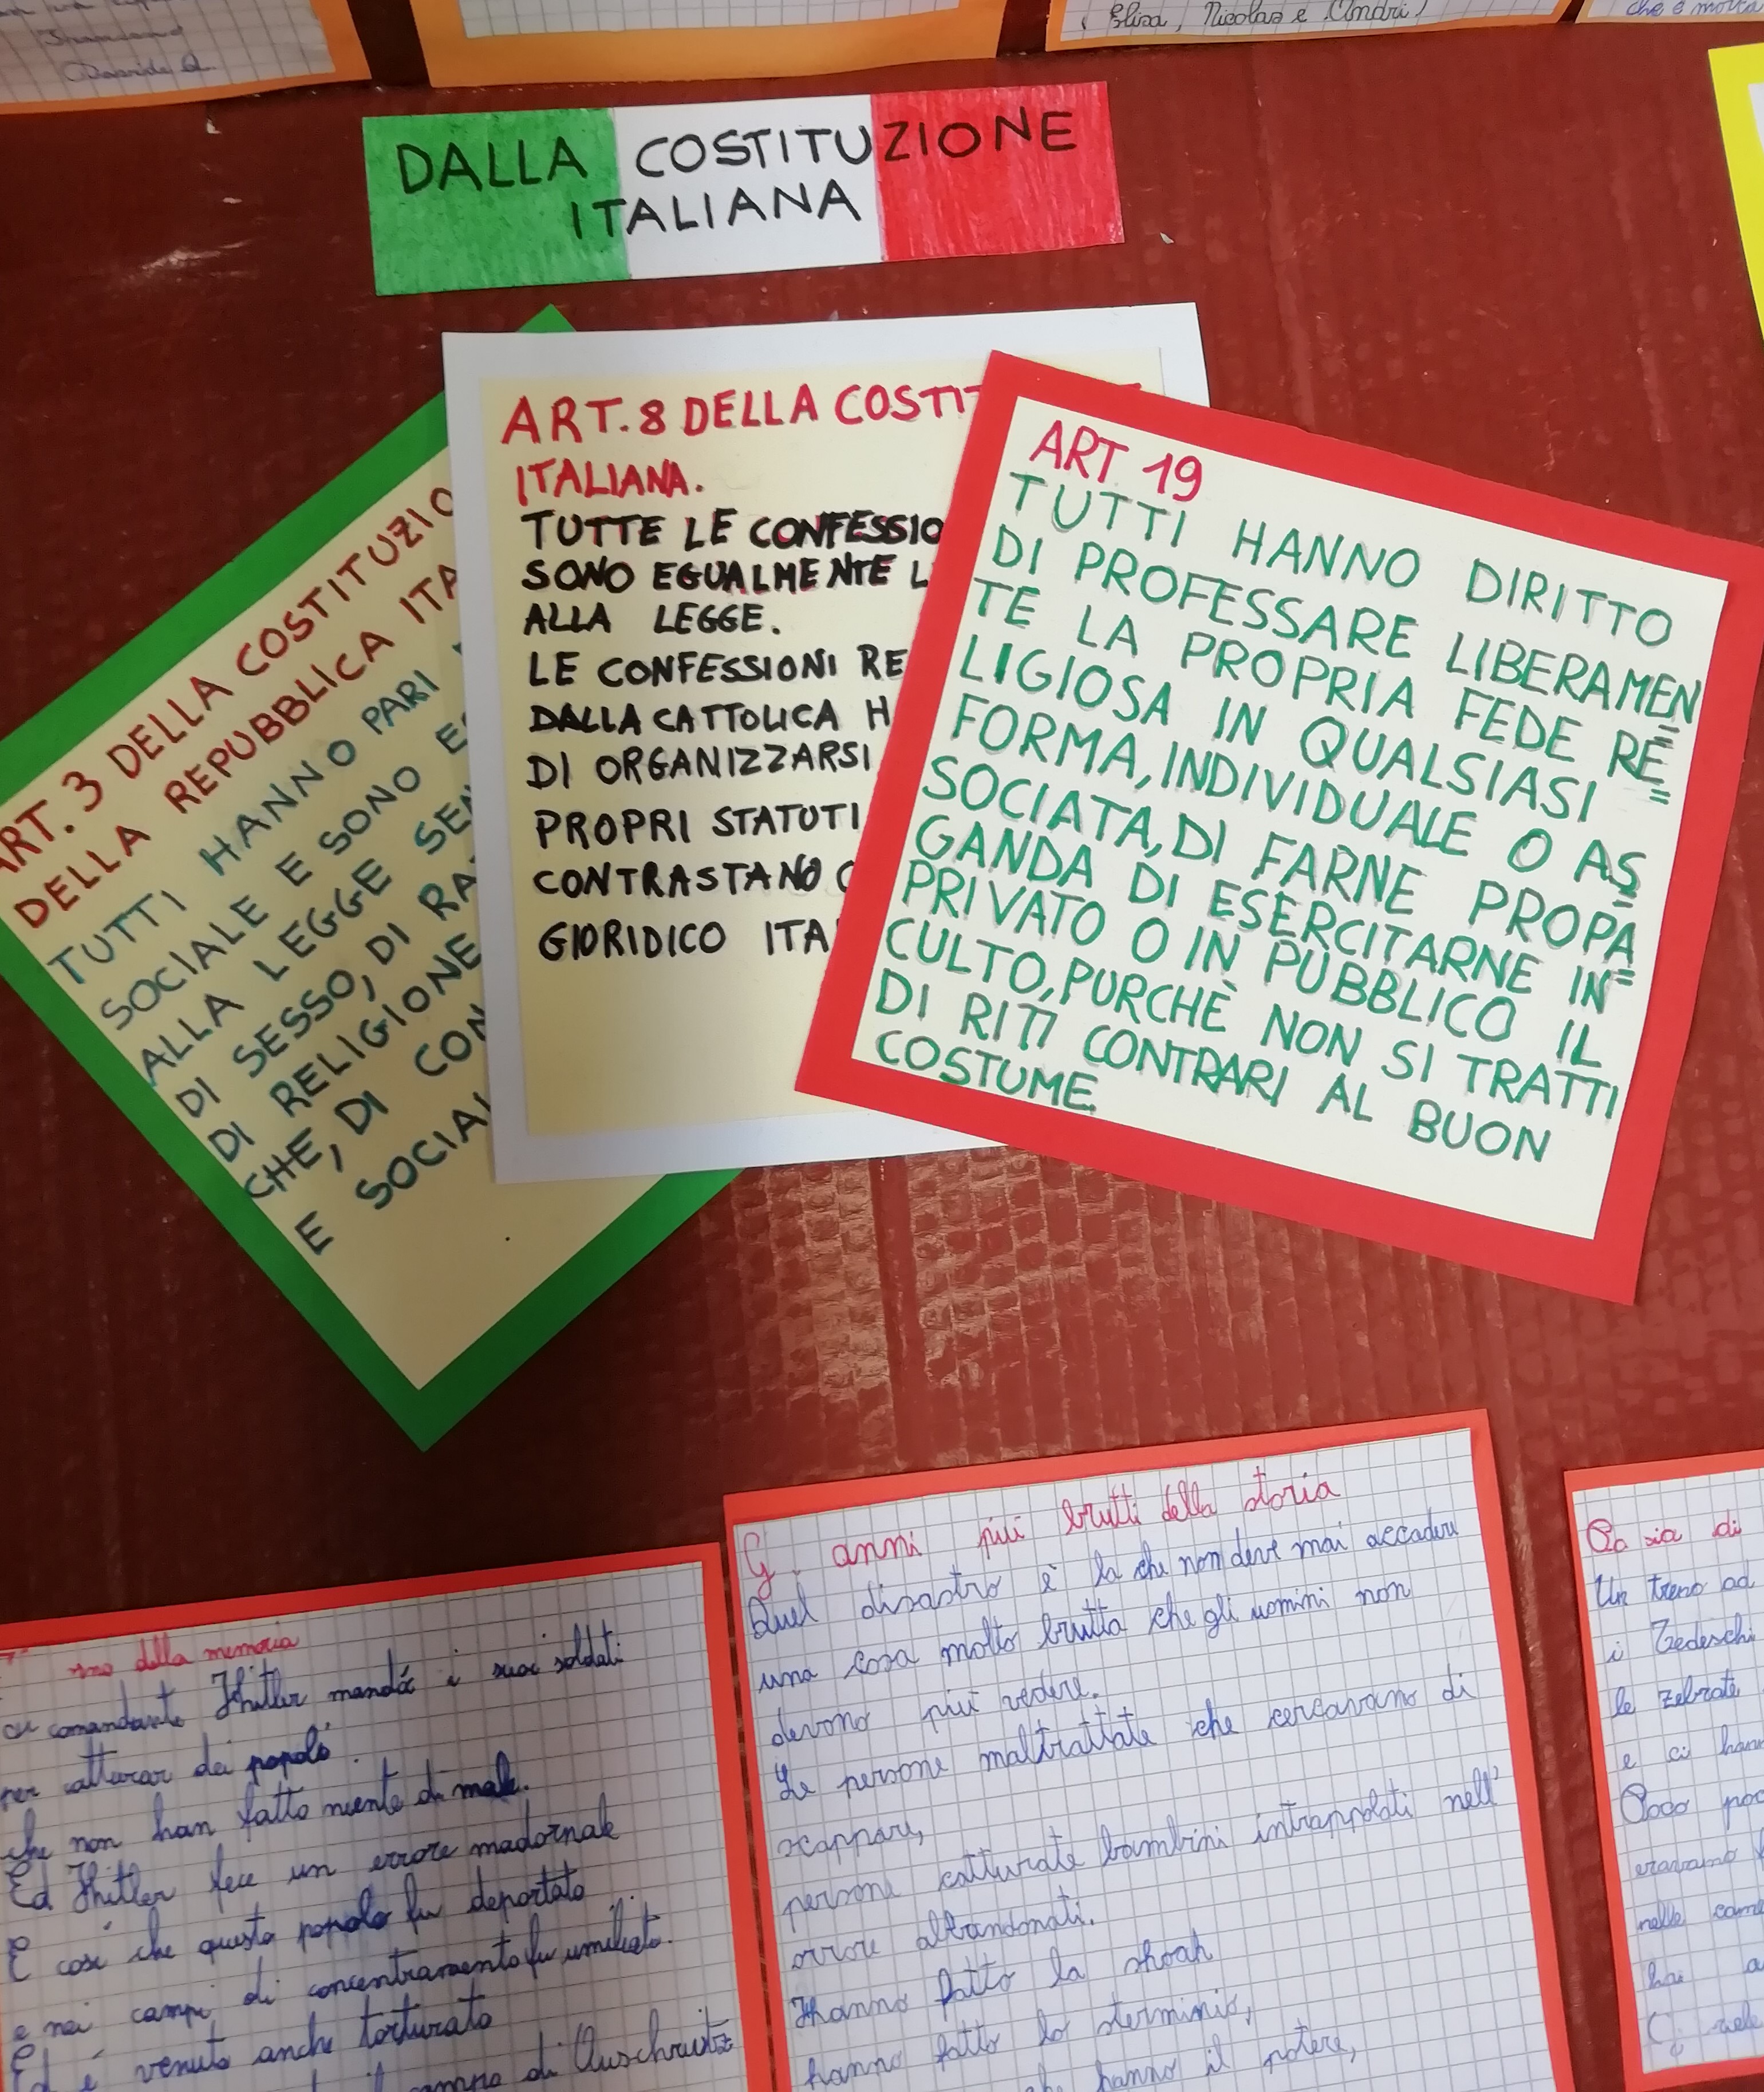 Davide Q.
(Elisa, Nicolas e Andri)
che è molta
DALLA COSTITUZIONE
ITALIANA
ART. 3 DELLA COSTITUZIO
DELLA REPUBBLICA ITA
TUTTI HANNO PARI
SOCIALE E SONO
ALLA LEGGE SEN
DI SESSO, DI RA
DI RELIGIONE
CHE, DI CON
E SOCIAL
ART. 8 DELLA COSTIT
ITALIANA.
TUTTE LE CONFESSIO
SONO EGUALMENTE L
ALLA LEGGE.
LE CONFESSIONI RE
DALLA CATTOLICA H
DI ORGANIZZARSI
PROPRI STATUTI
CONTRASTANO C
GIORIDICO ITA
ART 19
TUTTI HANNO DIRITTO
DI PROFESSARE LIBERAMEN
TE LA PROPRIA FEDE RE=
LIGIOSA IN QUALSIASI
FORMA, INDIVIDUALE O AS=
SOCIATA, DI FARNE PROPA=
GANDA DI ESERCITARNE IN
PRIVATO O IN PUBBLICO IL
CULTO, PURCHÈ NON SI TRATTI
DI RITI CONTRARI AL BUON
COSTUME.
della memoria
comandante Hitler mandá i suoi soldati
per catturar dei popoló.
che non han fatto niente di male.
Ed Hitler fece un errore madornale
E cosí che questo popolo fu deportato
e nei campi di concentramento fu umiliato.
Ed é venuto anche torturato
campo di Auschwitz
G. anni piú brutti della storia
Quel disastro è la che non deve mai accadere
una cosa molto brutta che gli uomini non
devono piú vedere.
Le persone maltrattate che cercavano di
scappare,
persone catturate bambini intrappolati nell'
orrore abbandonati.
Hanno fatto la shoah
hanno fatto lo sterminio,
che hanno il potere,
sia di
Un treno ad
i Tedeschi
le zebrate
e ci hann
Poco poc
eravamo
nelle came
hai a